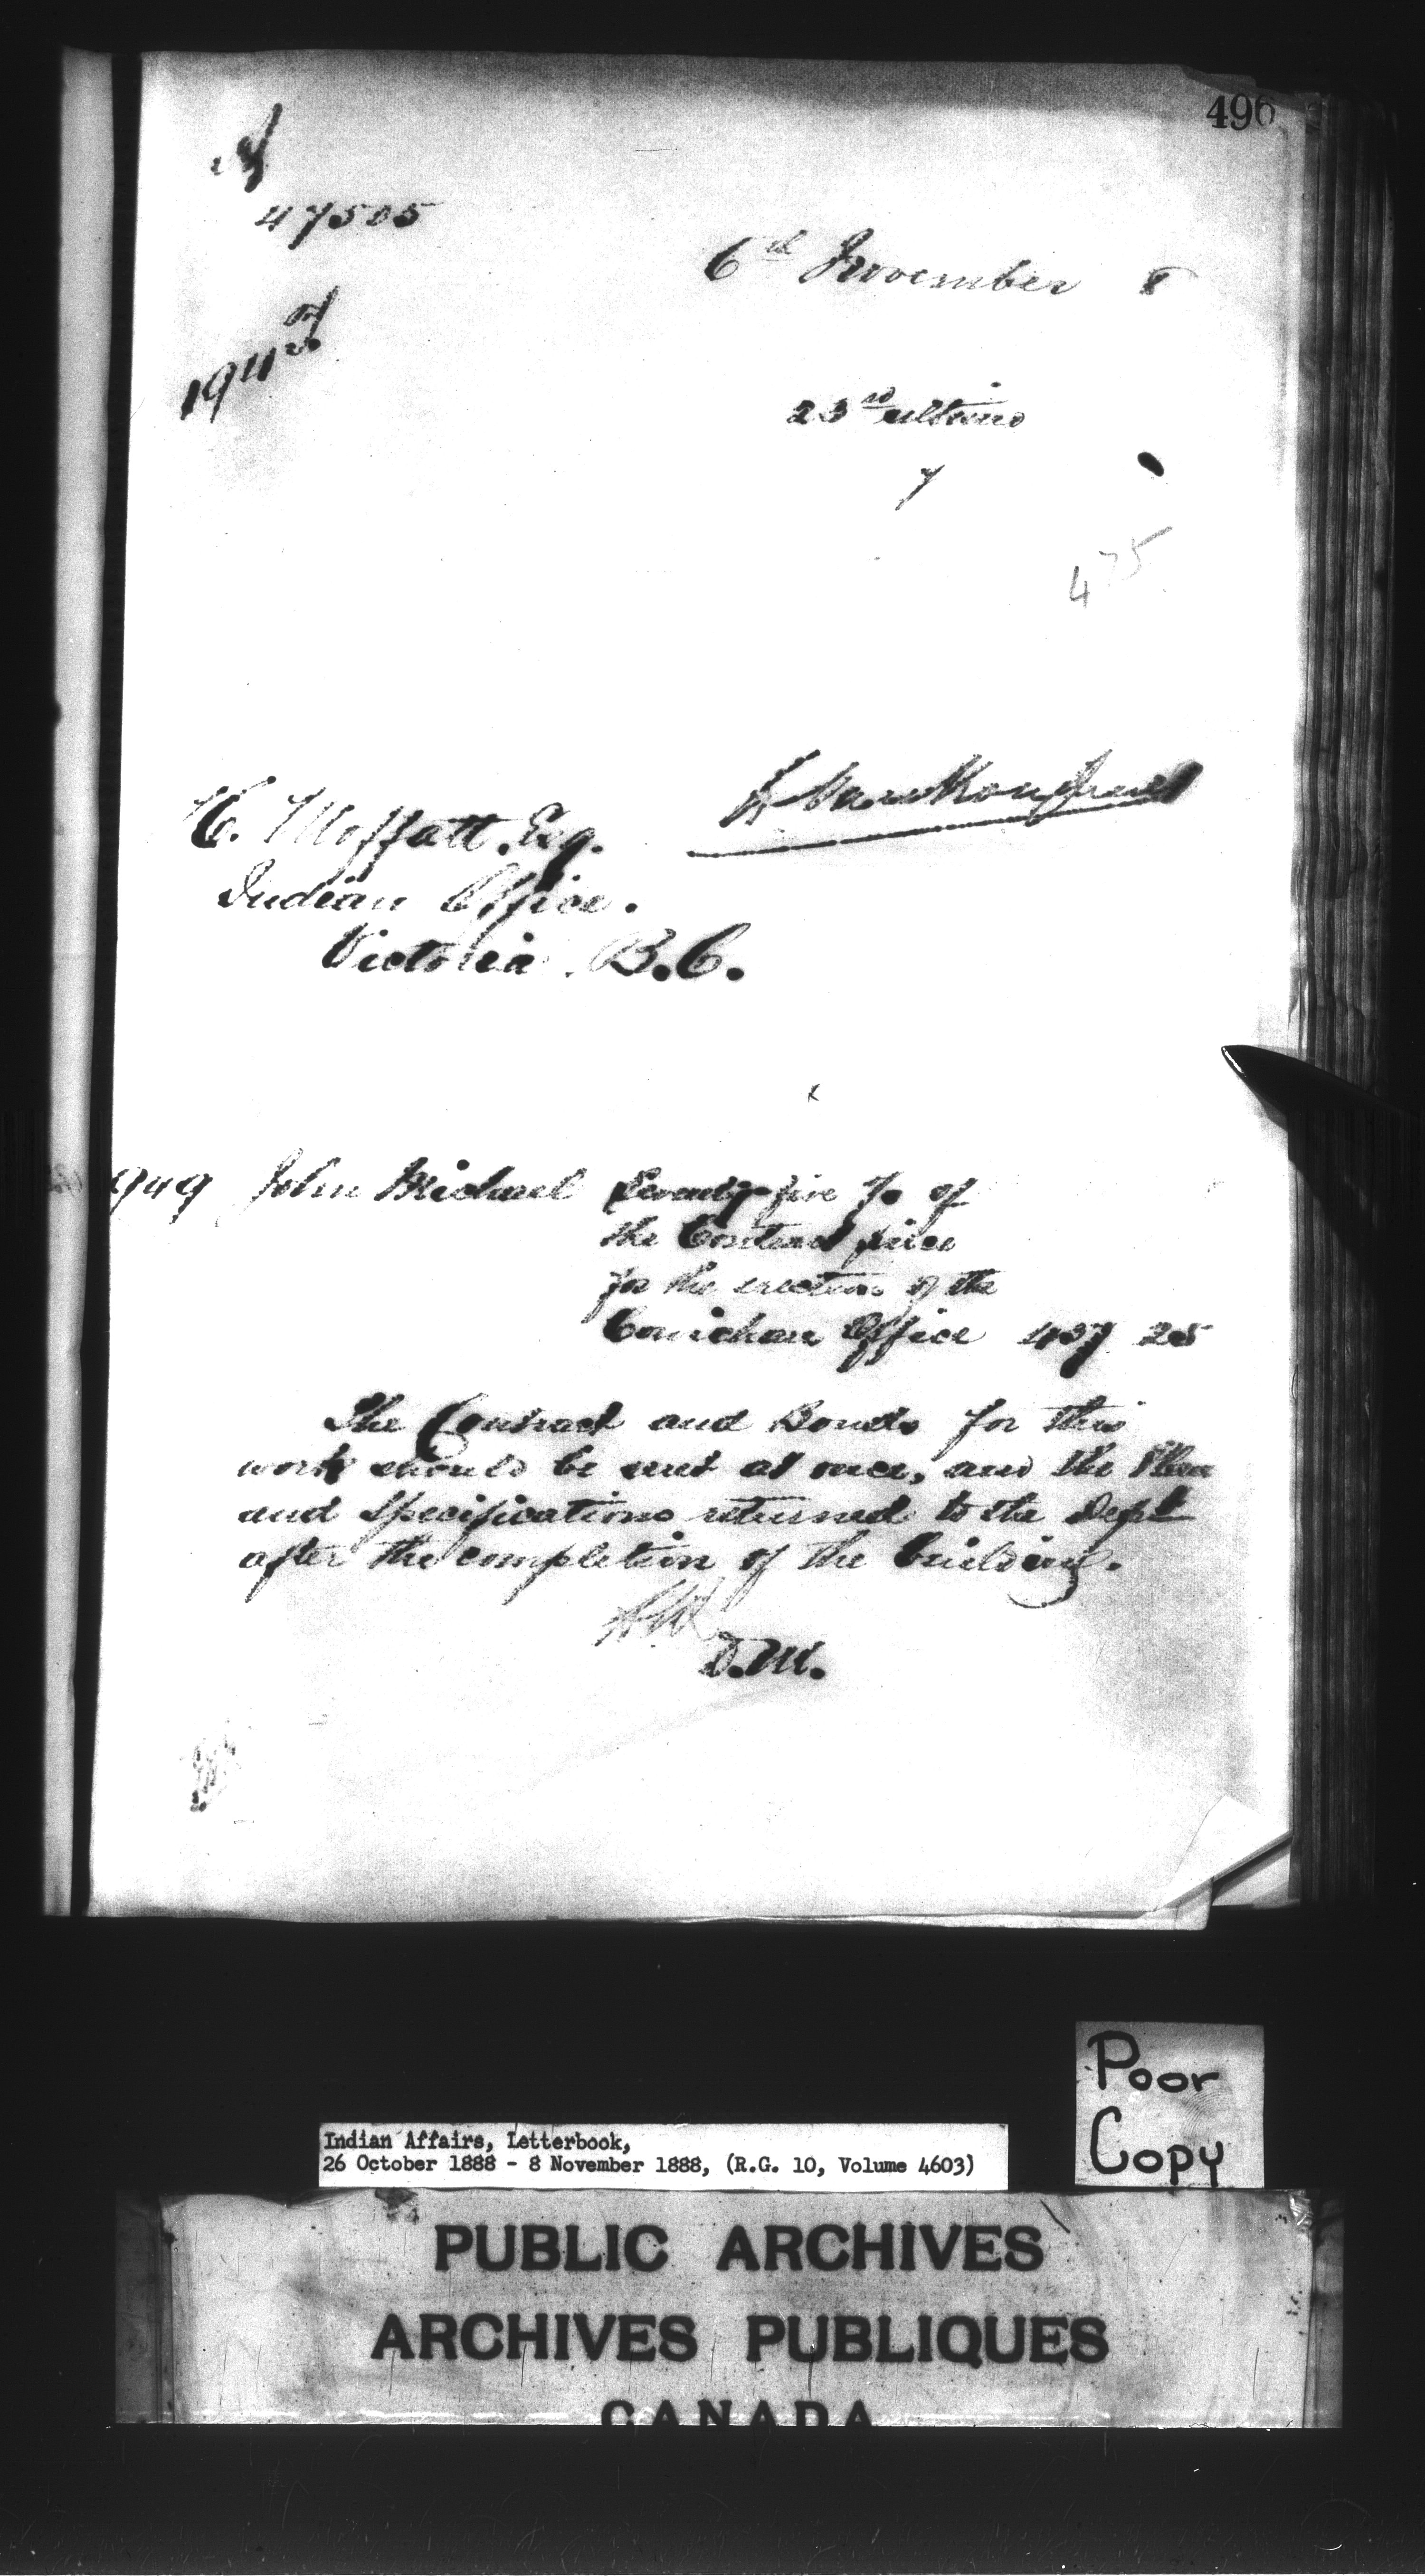 496
47505
6th November 8
23rd ultimo
7
475
L. Vankoughnet
H. Moffatt, Esq.
Indian Office.
Victoria. B.C.
949 John Michael Seventy five % of
the Contract price
for the erection of the
Cowichan Office 437 25
The Contract and Bonds for this
work should be sent at once, and the Plan
and Specifications returned to the Dept
after the completion of the building.
D.M.
Poor
Copy
Indian Affairs, Letterbook,
26 October 1888 - 8 November 1888, (R.G. 10, Volume 4603)
PUBLIC ARCHIVES
ARCHIVES PUBLIQUES
CANADA